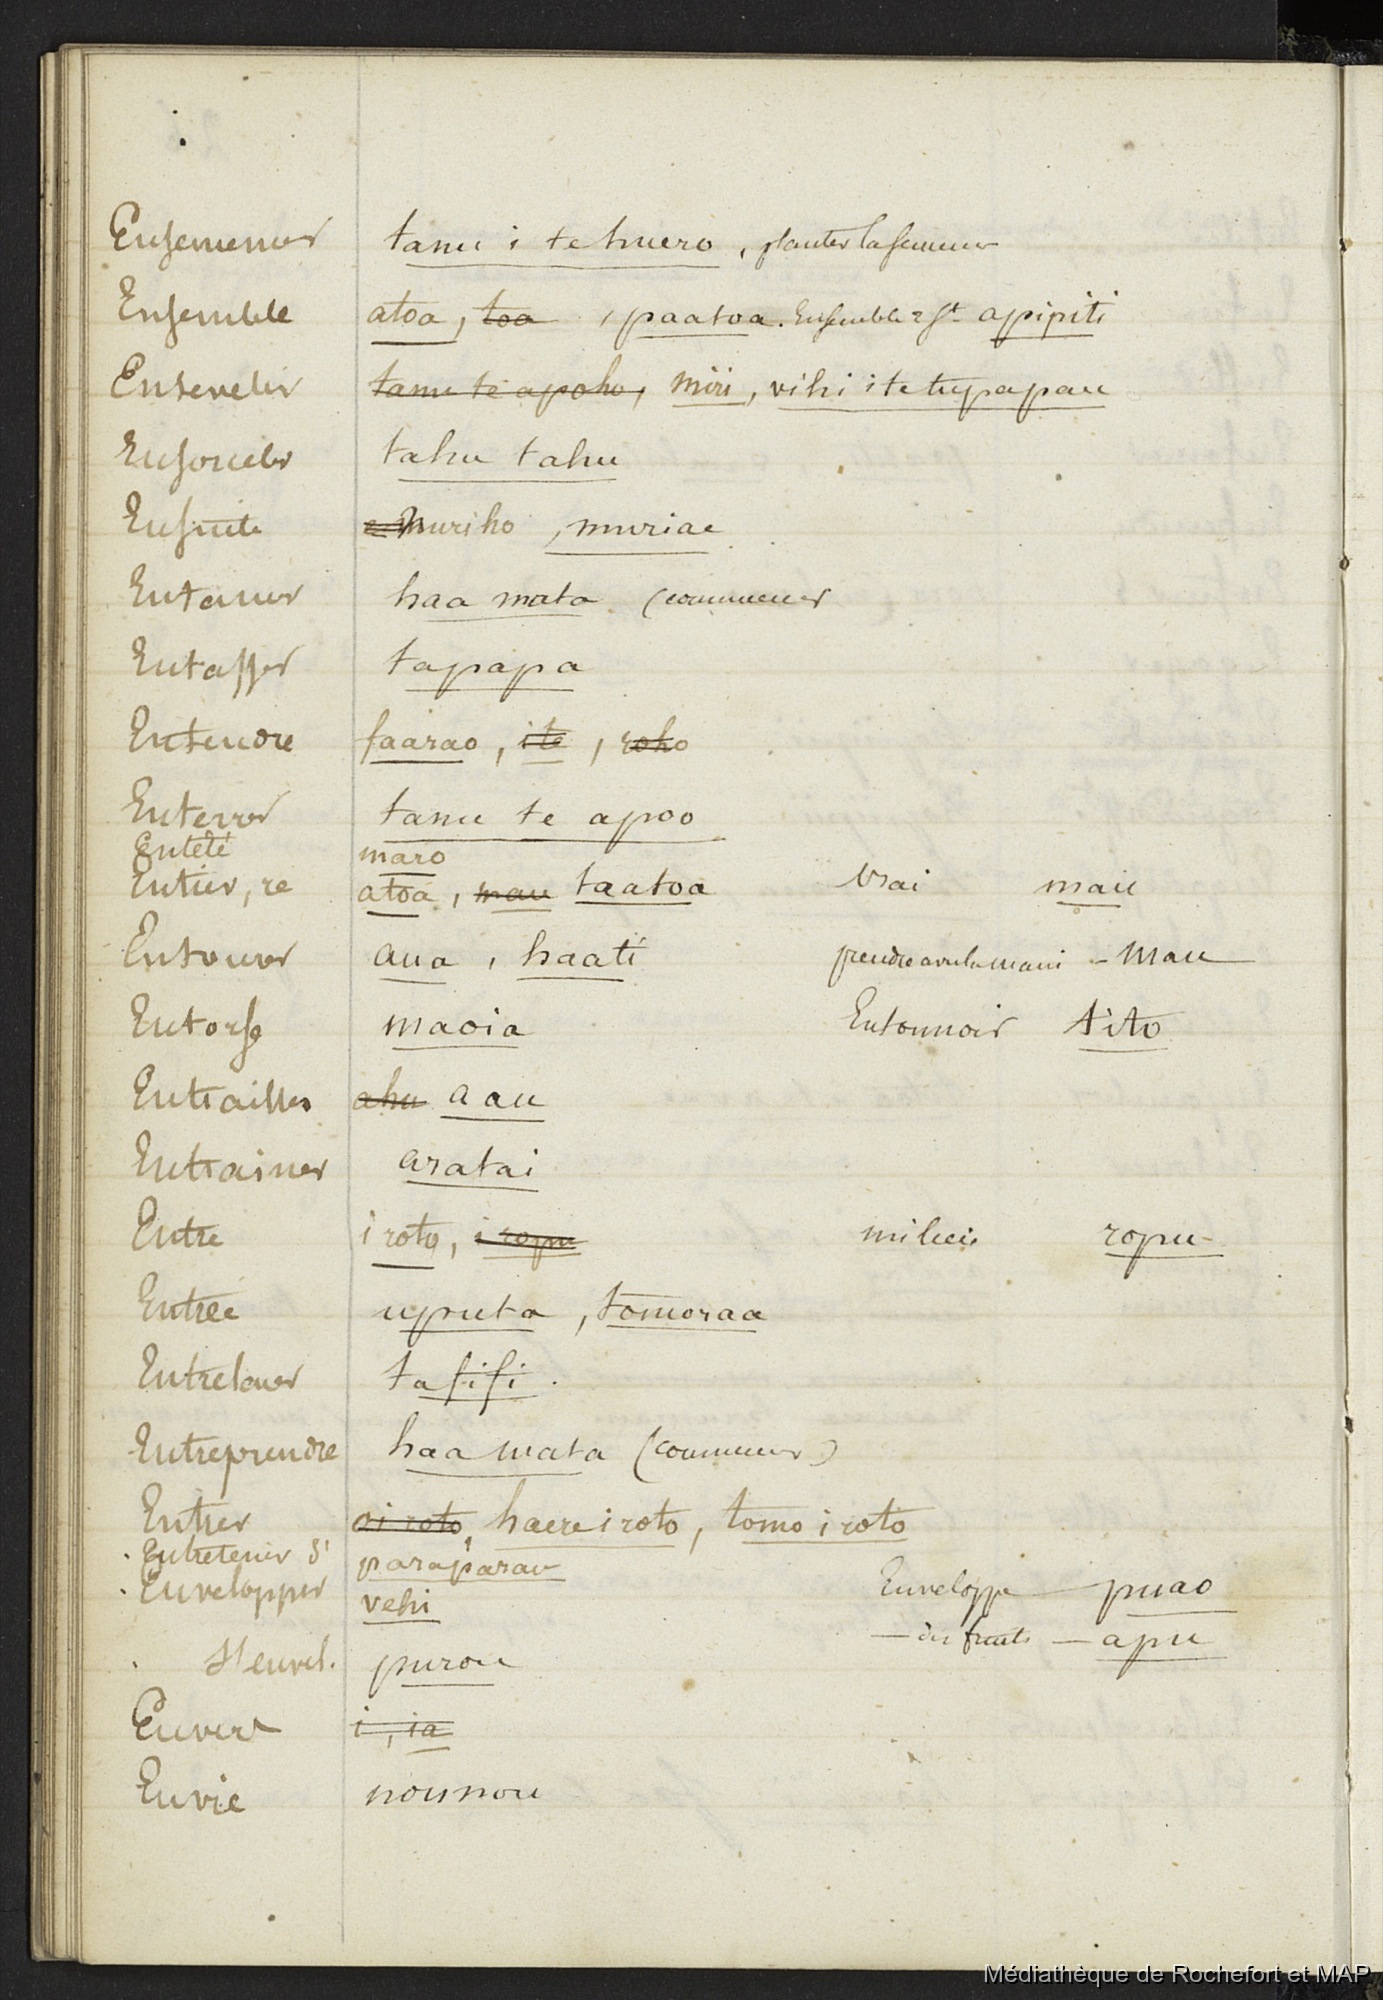 Ensemencer tanu i te huero, planter la semence
Ensemble atoa, toa, paatoa. Ensemble 2 st apipiti
Ensevelir tanu te apoho, miri, vihi i te tupapau
Ensorceler tahu tahu
Ensuite muriho, muriae
Entamer haa mata (commencer
Entasser tapapa
Entendre faarao, ite, roho
Enterrer tanu te apoo
Entêté maro
Entier, re atoa, mau taatoa vrai mau
Entourer aua, haati prendre avec la main - mau
Entorse maoia Entonnoir tito
Entrailles ahu aau
Entrainer aratai
Entre i roto, i ropu milieu ropu
Entrée uputa, tomoraa
Entrelacer tafifi.
Entreprendre haa mata (commencer)
Entrer oi roto, haere i roto, tomo i roto
Entretenir S' paraparau
Envelopper vehi Enveloppe - puao
S'envel. purou — des fruits — apu
Envers i, ia
Envie nounou
Médiathèque de Rochefort et MAP